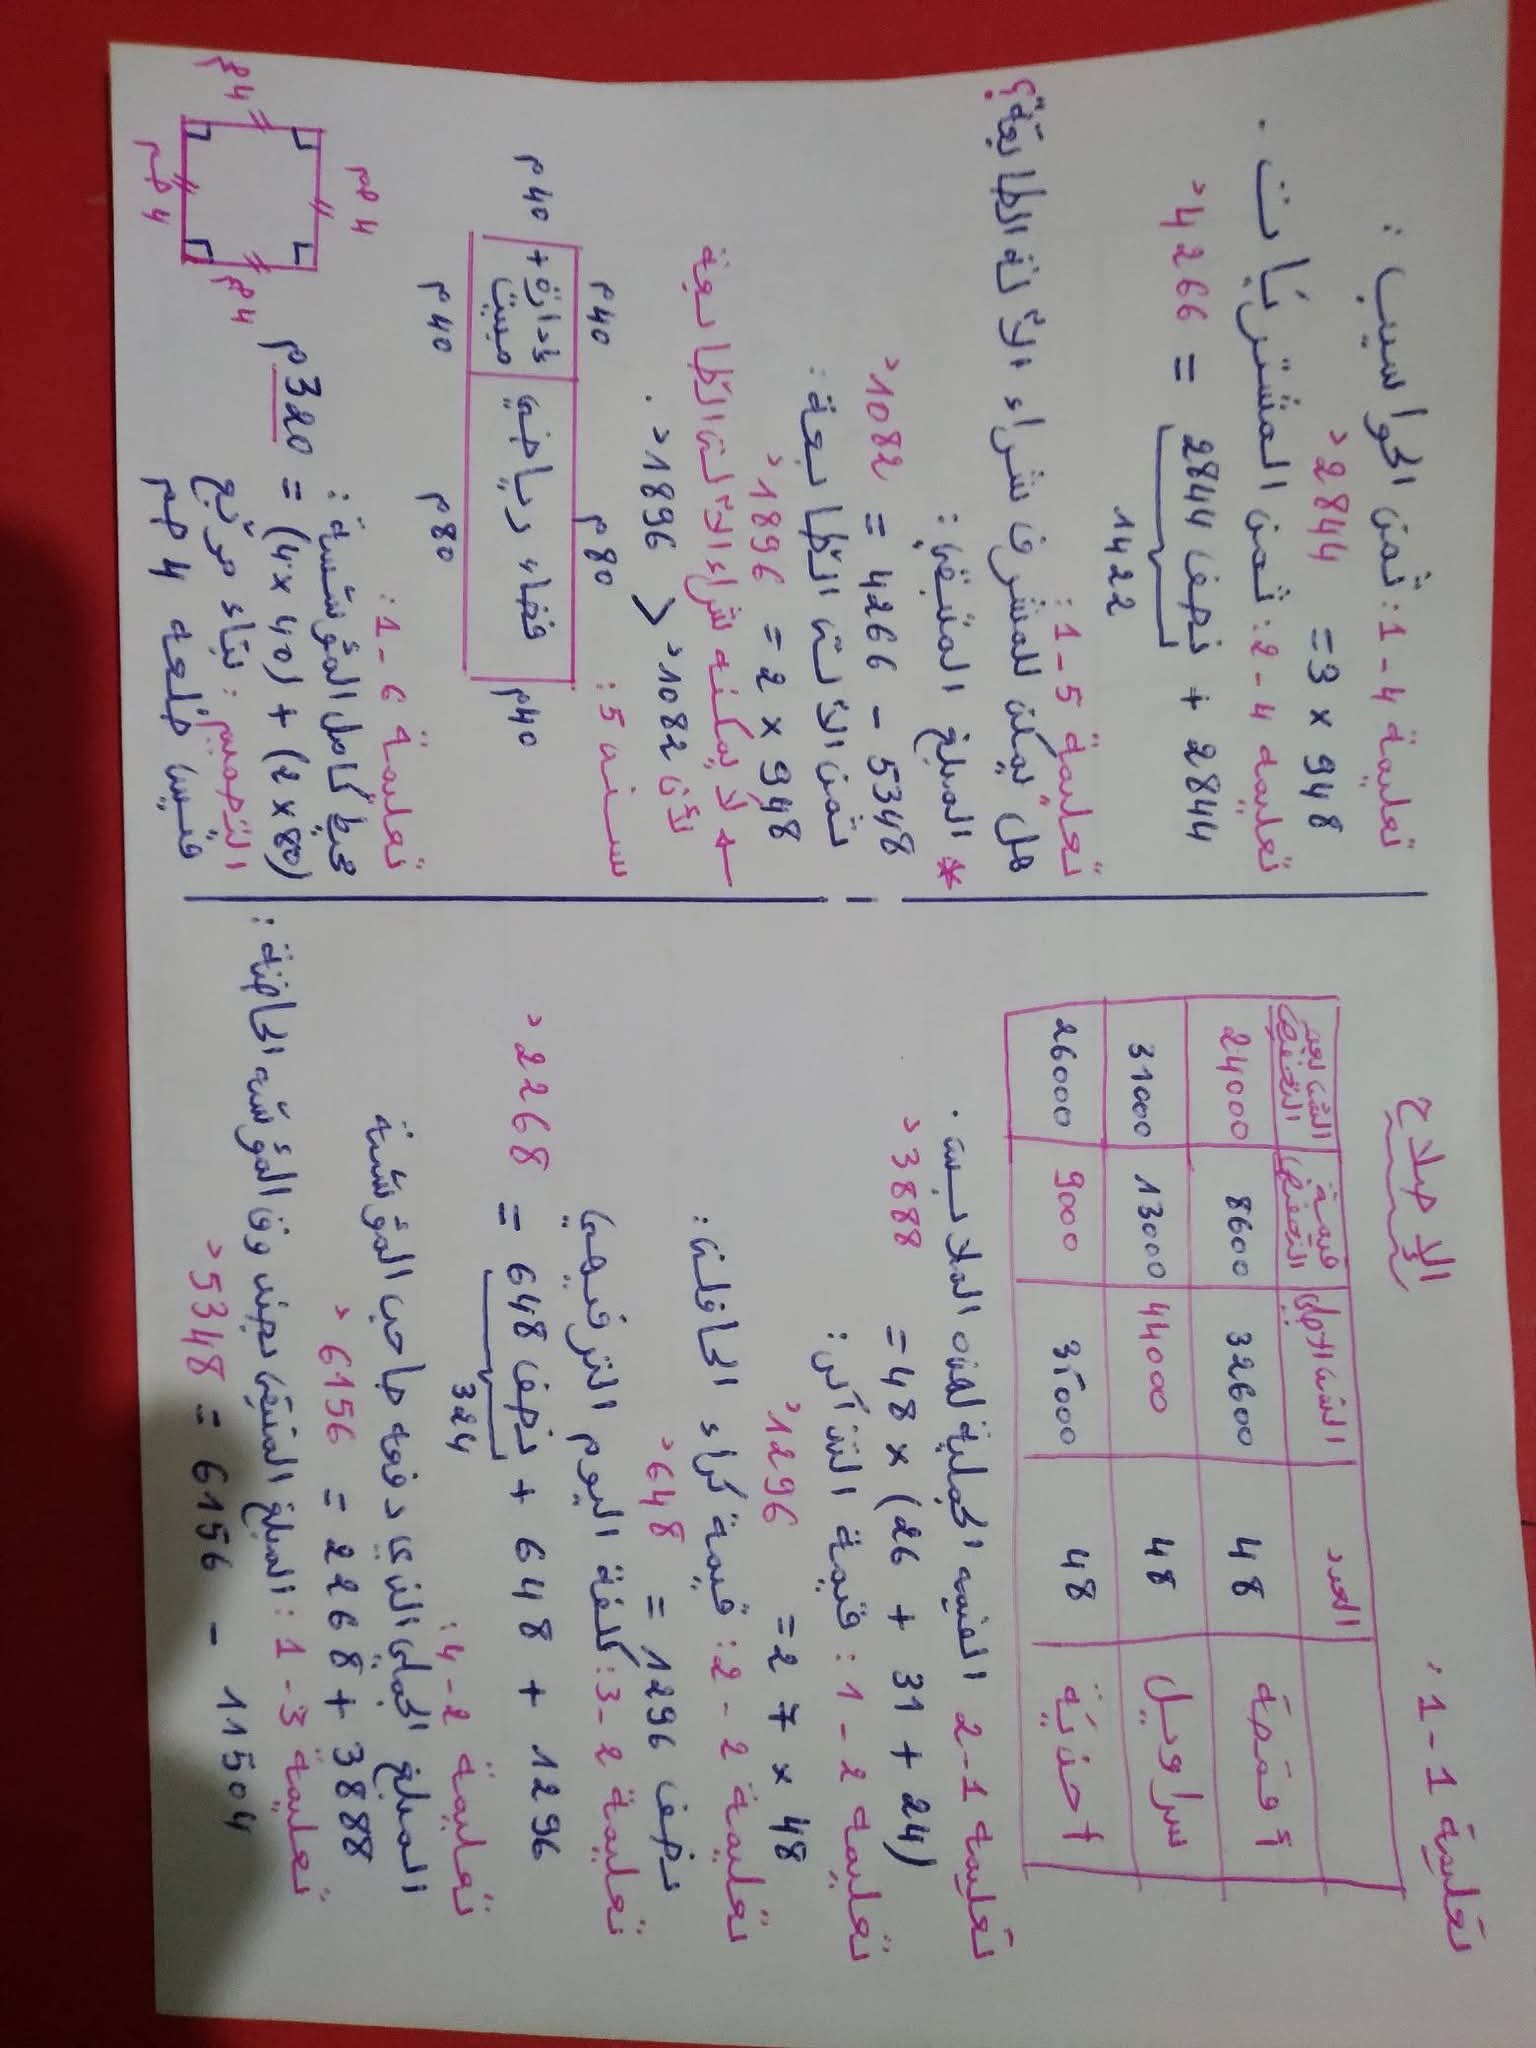 الإصلاح
تعليمة 1-1:
العدد الثمن الأصلي قيمة التخفيض الثمن بعد التخفيض
أقمصة 48 32600 8600 24000
سراويل 48 44000 13000 31000
أحذية 48 35000 9000 26000
تعليمة 1-2 القيمة الجملية لهذه الملابس.
(24 + 31 + 26) × 48 = 3888د
تعليمة 2-1: قيمة التذاكر:
48 × 27 = 1296د
تعليمة 2-2: قيمة كراء الحافلة:
نصف 1296 = 648د
تعليمة 2-3: كلفة اليوم الترفيهي
1296 + 648 + نصف 648 = 2268د
324
تعليمة 2-4:
المبلغ الجملي الذي دفعه صاحب المؤسسة
3888 + 2268 = 6156د
تعليمة 3-1: المبلغ المتبقي بصندوق المؤسسة الحاضنة:
11504 - 6156 = 5348د
تعليمة 4-1: ثمن الحواسيب:
948 × 3 = 2844د
تعليمة 4-2: ثمن المشتريات.
2844 + نصف 2844 = 4266د
1422
تعليمة 5-1:
هل يمكن للمشرف شراء الآلة الطابعة؟
* المبلغ المتبقي:
5348 - 4266 = 1082د
ثمن الآلة الطابعة:
948 × 2 = 1896د
← لا يمكنه شراء الآلة الطابعة
لأن 1082د < 1896د.
سند 5:
80م 40م
40م فضاء رياضي إدارة + مبيت 40م
80م 40م
تعليمة 6-1:
محيط كامل المؤسسة:
(80 × 2) + (40 × 4) = 320م
التصميم: بناء مربع
قيس ضلعه 4 صم
4 صم
4 صم
4 صم
4 صم